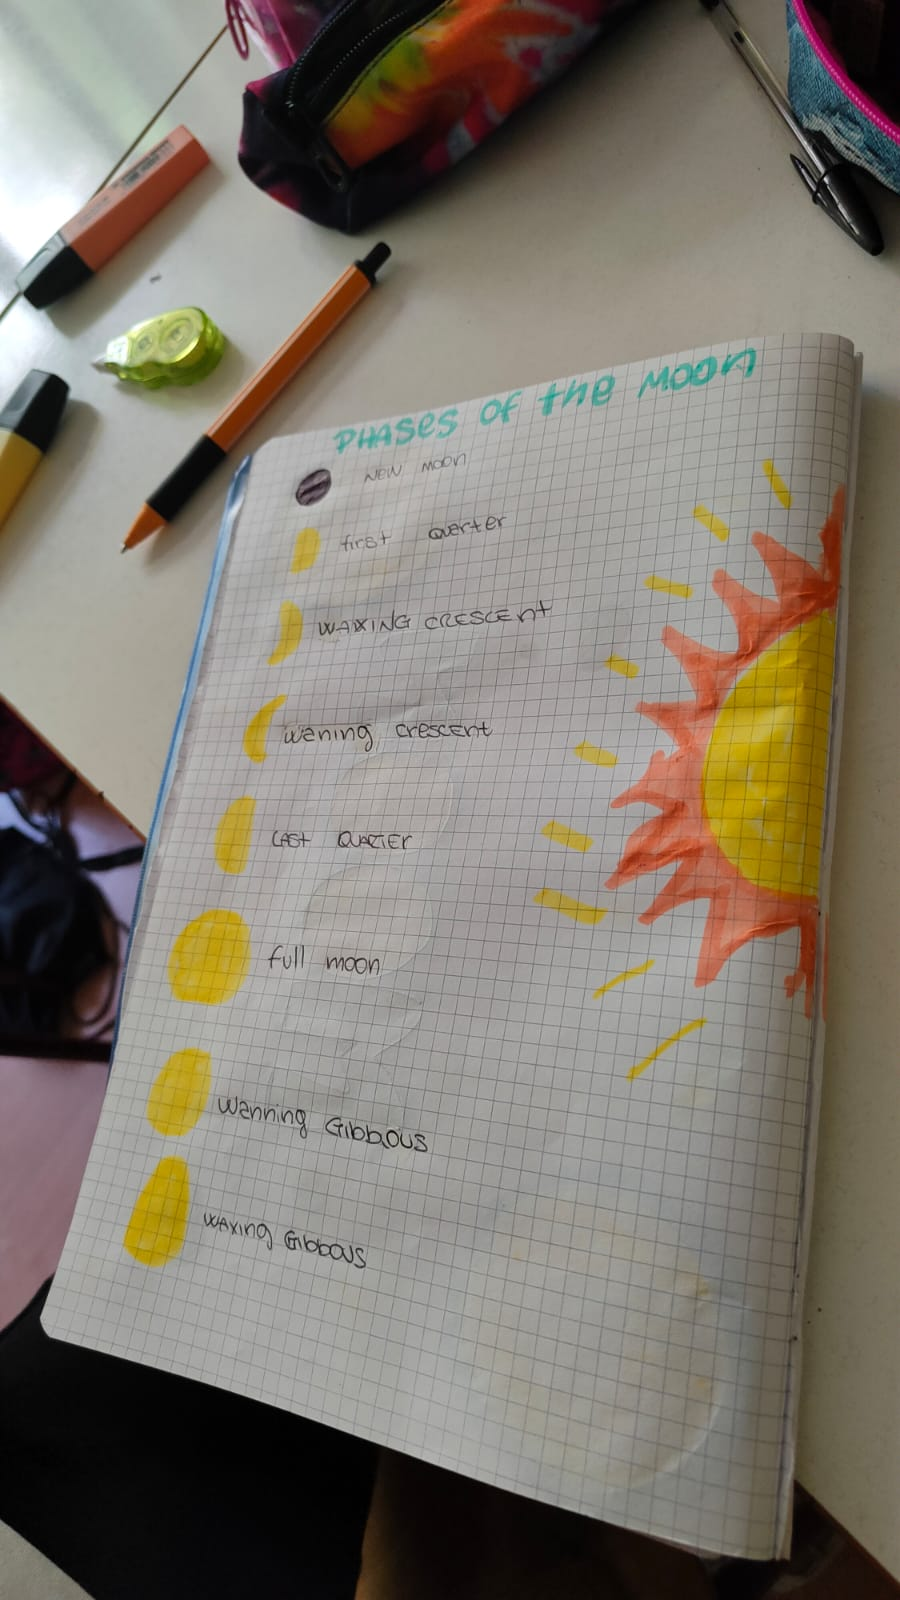 PHASES OF the MOON
NEW MOON
first Quarter
WAXING CRESCENT
Waning crescent
LAST QUARTER
full moon
Wanning Gibbous
WAXing Gibbous